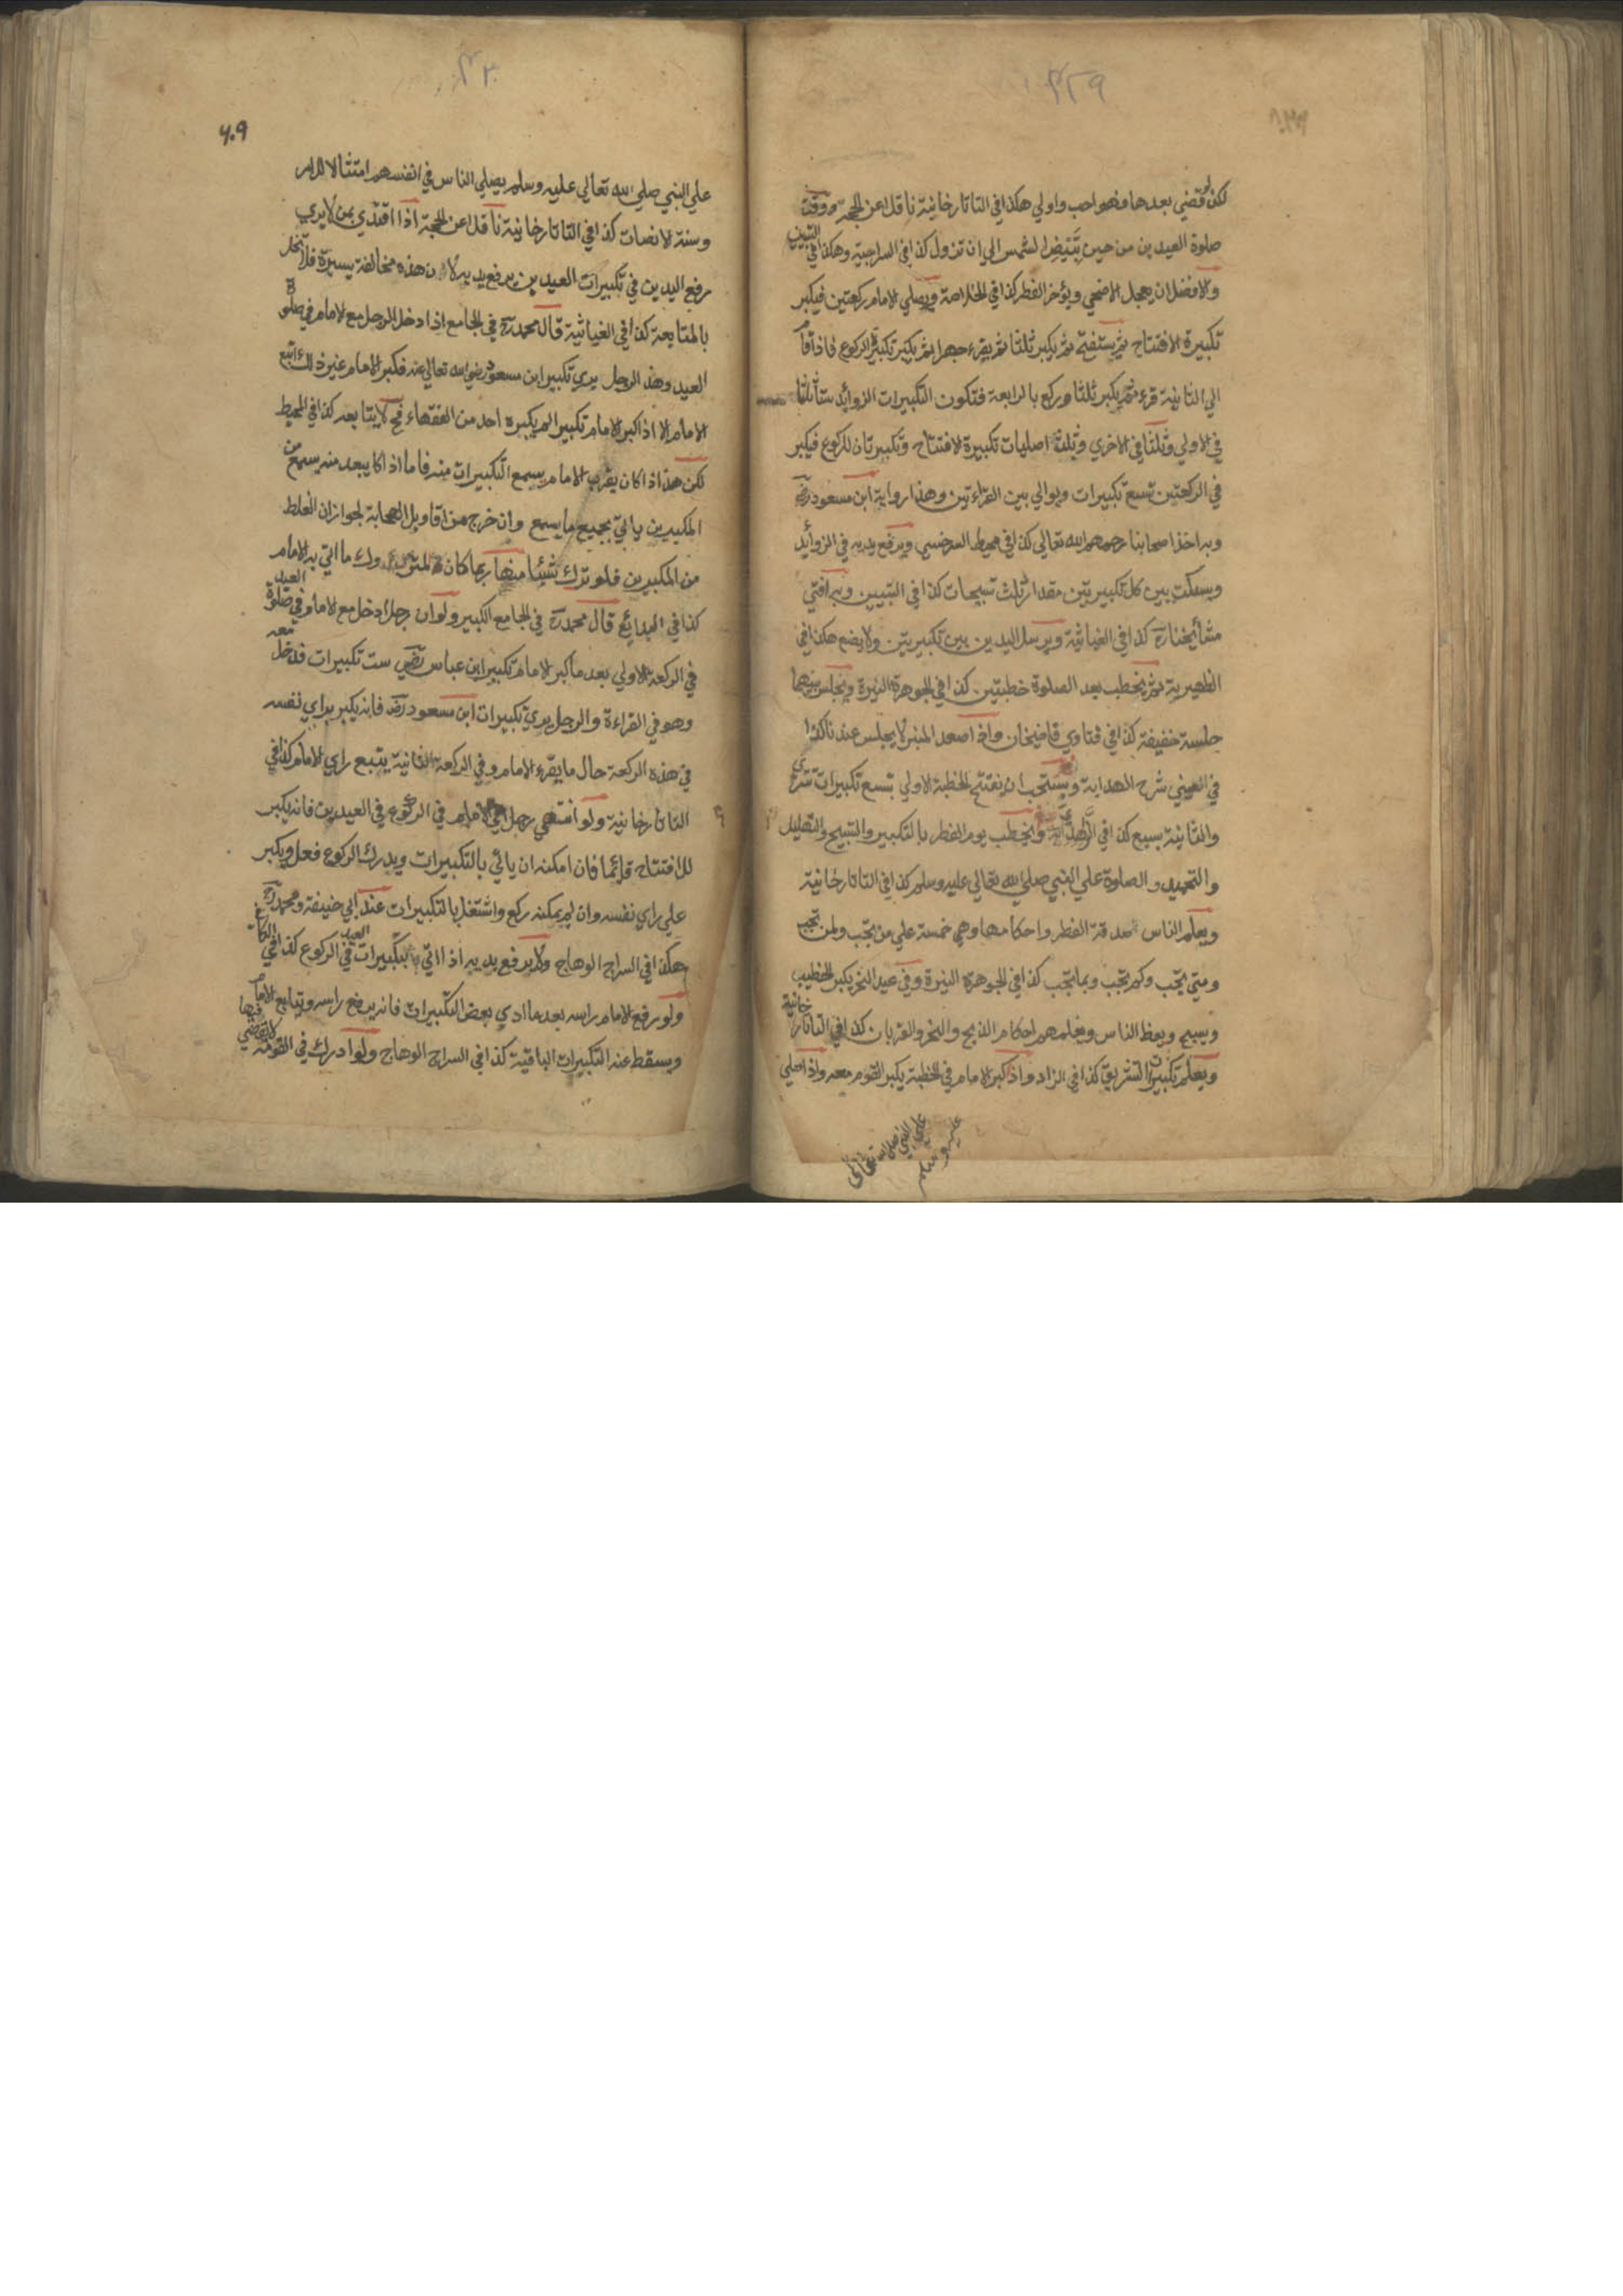 ٣٢٩
لكن لو قضي بعدها فهو احب واولي هكذا في التاتارخانية ناقلا عن الحجة ووقت
صلوة العيدين من حين تبيض الشمس الي ان تزول كذا في السراجية وهكذا في التبيين
والافضل ان يعجل الاضحي ويؤخر الفطر كذا في الخلاصة ويصلي الامام ركعتين فيكبر
تكبيرة الافتتاح ثم يستفتح ثم يكبر ثلثا ثم يقرء جهرا ثم يكبر تكبيرة الركوع فاذا قام
الي الثانية قرء ثم يكبر ثلثا وركع بالرابعة فتكون التكبيرات الزوائد ستا ثلثا
في الاولي وثلثا في الاخري وثلثة اصليات تكبيرة الافتتاح وتكبيرتان للركوع فيكبر
في الركعتين تسع تكبيرات ويوالي بين القراءتين وهذا رواية ابن مسعود رض
وبه اخذ اصحابنا رحمهم الله تعالي كذا في محيط السرخسي ويرفع يديه في الزوائد
ويسكت بين كل تكبيرتين مقدار ثلث تسبيحات كذا في التبيين وبه افتي
مشائخنا رح كذا في الغياثية ويرسل اليدين بين تكبيرتين ولا يضع هكذا في
الظهيرية ثم يخطب بعد الصلوة خطبتين كذا في الجوهرة النيرة ويجلس بينهما
جلسة خفيفة كذا في فتاوي قاضيخان واذا صعد المنبر لا يجلس عندنا كذا
في العيني شرح الهداية ويستحب ان يفتتح الخطبة الاولي بتسع تكبيرات تتري
والثانية بسبع كذا في الزاهدي ويخطب يوم الفطر بالتكبير والتسبيح والتهليل
والتحميد والصلوة علي النبي صلي الله تعالي عليه وسلم كذا في التاتارخانية
ويعلم الناس صدقة الفطر واحكامها وهي خمسة علي من تجب ولمن تجب
ومتي تجب وكم تجب ومما تجب كذا في الجوهرة النيرة وفي عيد النحر يكبر الخطيب
ويسبح ويعظ الناس ويعلمهم احكام الذبح والنحر والقربان كذا في التاتارخانية
ويعلم تكبيرات التشريق كذا في الزاد واذا كبر الامام في الخطبة يكبر القوم معه واذا صلي
علي النبي صلي الله تعالي
عليه وسلم
٣٣٠
٤٠٩
علي النبي صلي الله تعالي عليه وسلم يصلي الناس في انفسهم امتثالا للامر
وسنة الانصات كذا في التاتارخانية ناقلا عن الحجة اذا اقتدي بمن لا يري
رفع اليدين في تكبيرات العيدين يرفع يديه لان هذه مخالفة يسيرة فلا تخل
بالمتابعة كذا في الغياثية قال محمد رح في الجامع اذا دخل الرجل مع الامام في صلوة
العيد وهذا الرجل يري تكبير ابن مسعود رضي الله تعالي عنه فكبر الامام غير ذلك اتبع
الامام الا اذا كبر الامام تكبيرا لم يكبره احد من الفقهاء فح لا يتابعه كذا في المحيط
لكن هذا اذا كان يقرب الامام يسمع التكبيرات منه فاما اذا كان يبعد منه يسمع من
المكبرين ياتي بجميع ما يسمع وان خرج من اقاويل الصحابة لجواز ان الغلط
من المكبرين فلو ترك شيئا منها ربما كان المتروك ما اتي به الامام
كذا في البدائع قال محمد رح في الجامع الكبير ولو ان رجلا دخل مع الامام في صلوة العيد
في الركعة الاولي بعد ما كبر الامام تكبير ابن عباس رضي ست تكبيرات فدخل معه
وهو في القراءة والرجل يري تكبيرات ابن مسعود رض فانه يكبر براي نفسه
في هذه الركعة حال ما يقرء الامام وفي الركعة الثانية يتبع راي الامام كذا في
التاتارخانية ولو انتهي رجل الي الامام في الركوع في العيدين فانه يكبر
للافتتاح قائما فان امكنه ان ياتي بالتكبيرات ويدرك الركوع فعل ويكبر
علي راي نفسه وان لم يمكنه ركع واشتغل بالتكبيرات عند ابي حنيفة ومحمد رح
هكذا في السراج الوهاج ولا يرفع يديه اذا اتي بتكبيرات العيد في الركوع كذا في الكافي
ولو رفع الامام راسه بعد ما ادي بعض التكبيرات فانه يرفع راسه ويتابع الامام
ويسقط عنه التكبيرات الباقية كذا في السراج الوهاج ولو ادركه في القومة لا يقضي فيها